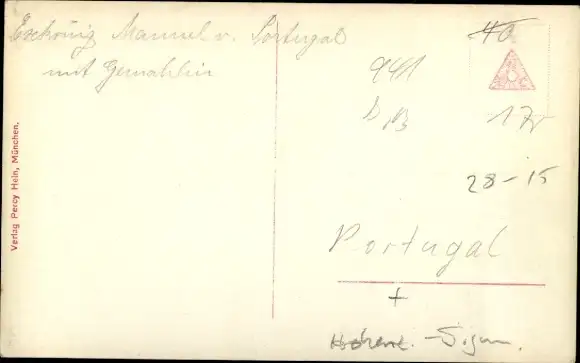 Exkönig Manuel v. Portugal
mit Gemahlin
40
941
17
28-15
Portugal
+
Hohenz. - Sigm.
Verlag Percy Hein, München.